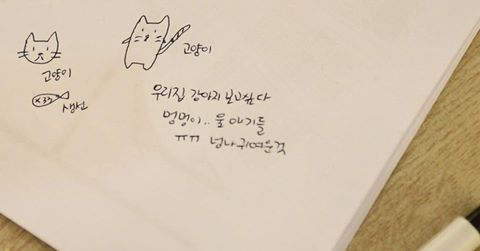 고양이
고양이
생선
우리집 강아지 보고싶다
멍멍이.. 울 아기들
ㅠㅠ 넘나 귀여운것